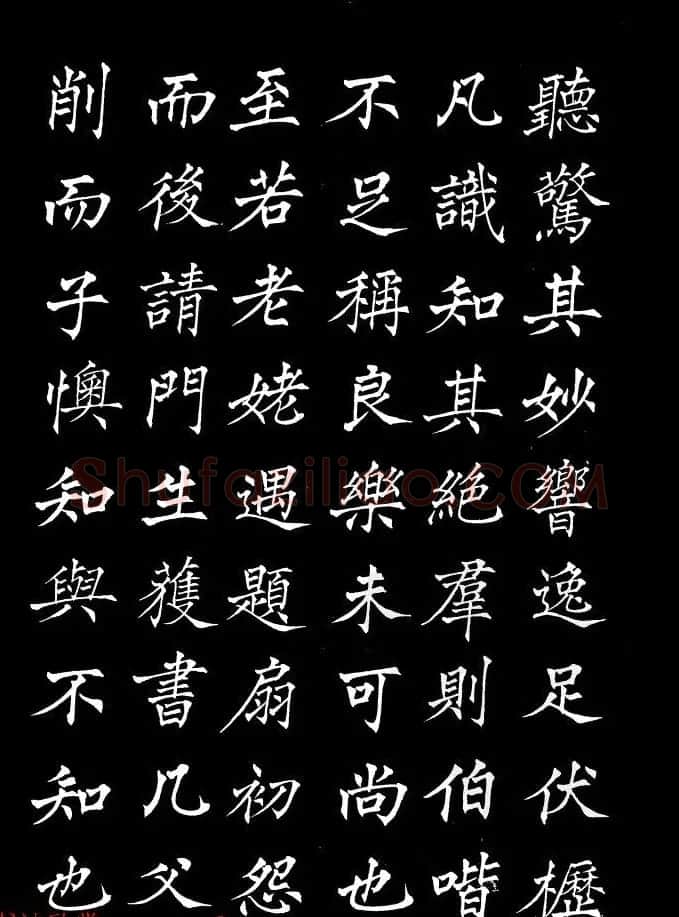 聽驚其妙響逸足伏櫪
凡識知其絶羣則伯喈
不足稱良樂未可尚也
至若老姥遇題扇初怨
而後請門生獲書几父
削而子懊知與不知也
Shufaziliao.COM